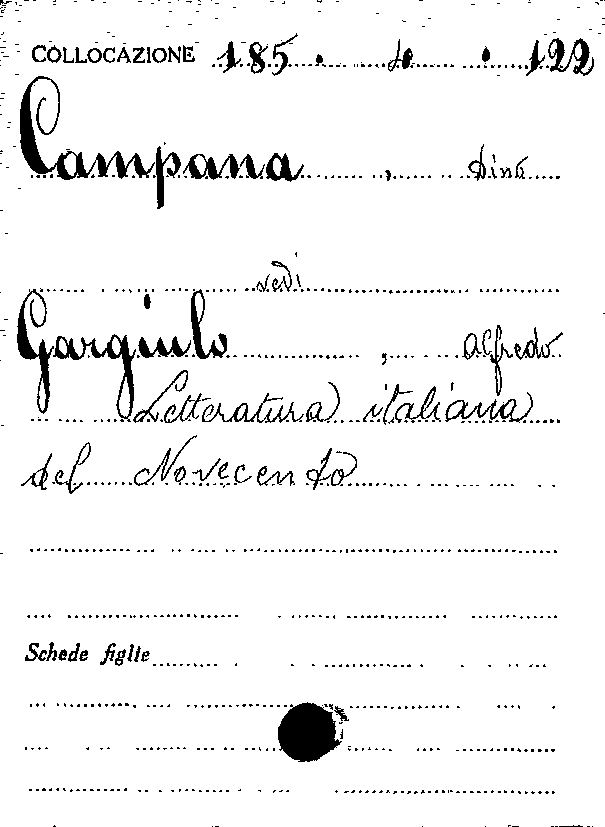 COLLOCAZIONE 185 . D . 122
Campana, Dino
vedi
Gargiulo, Alfredo
Letteratura italiana
del Novecento
Schede figlie